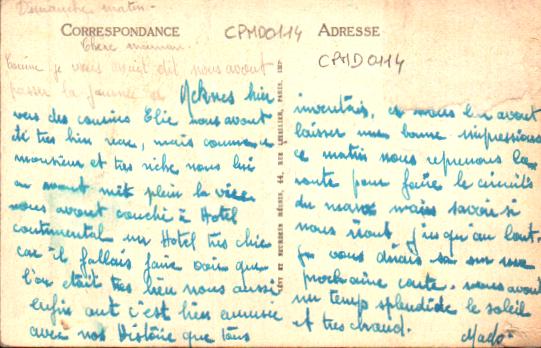 Dimanche matin.
CORRESPONDANCE
CPMD0114
ADRESSE
CPMD0114
Chère maman.
Comme je vous avait dit nous avont
passer la journée a Meknes hier
vers des cousins Elie nous avont
été très bien reçu, mais comme ce
monsieur et très riche nous lui
en avont mit plein la vue
nous avont couché à Hotel
continental un Hotel très chic
car il fallais faire voir que
l'on était très bien nous aussi
enfin ont c'est bien amusée
avec nos Histoire que tous
inventais, et nous leur avont
laisser une bonne impressions
ce matin nous reprenons la
route pour faire le circuits
du maroc mais savoir si
nous iront jusqu'au bout.
je vous dirais sa sur une
prochaine carte. nous avont
un temps splendide le soleil
et très chaud.
Mado
LÉVY ET NEURDEIN RÉUNIS, 44, RUE LETELLIER, PARIS, IMP.